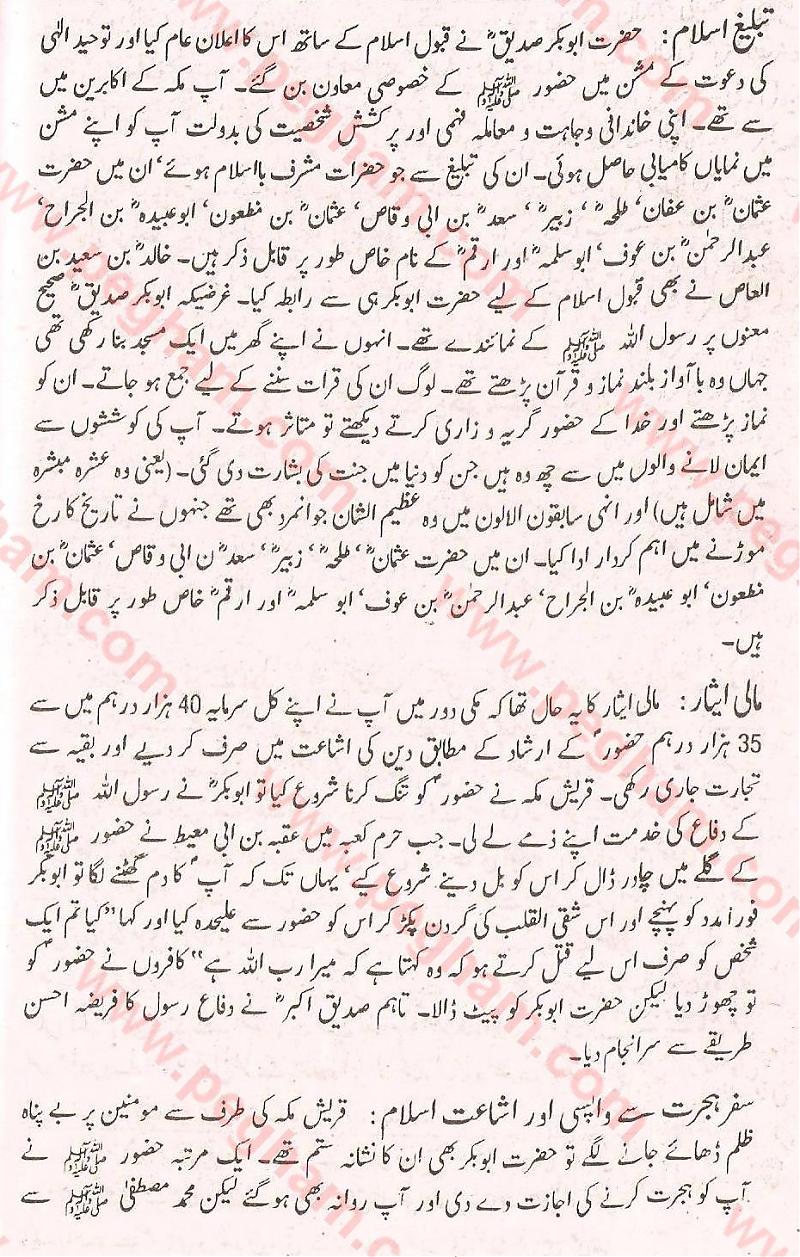 تبلیغ اسلام: حضرت ابوبکر صدیقؓ نے قبول اسلام کے ساتھ اس کا اعلان عام کیا اور توحید الٰہی
کی دعوت کے مشن میں حضور ﷺ کے خصوصی معاون بن گئے۔ آپ مکہ کے اکابرین میں
سے تھے۔ اپنی خاندانی وجاہت و معاملہ فہمی اور پرکشش شخصیت کی بدولت آپ کو اپنے مشن
میں نمایاں کامیابی حاصل ہوئی۔ ان کی تبلیغ سے جو حضرات مشرف بااسلام ہوئے‘ ان میں حضرت
عثمانؓ بن عفان‘ طلحہؓ‘ زبیرؓ‘ سعدؓ بن ابی وقاص‘ عثمانؓ بن مظعون‘ ابوعبیدہؓ بن الجراح‘
عبدالرحمٰنؓ بن عوف‘ ابوسلمہؓ اور ارقمؓ کے نام خاص طور پر قابل ذکر ہیں۔ خالدؓ بن سعید بن
العاص نے بھی قبول اسلام کے لیے حضرت ابوبکر ہی سے رابطہ کیا۔ غرضیکہ ابوبکر صدیقؓ صحیح
معنوں پر رسول اللہ ﷺ کے نمائندے تھے۔ انہوں نے اپنے گھر میں ایک مسجد بنا رکھی تھی
جہاں وہ باآواز بلند نماز و قرآن پڑھتے تھے۔ لوگ ان کی قرات سننے کے لیے جمع ہو جاتے۔ ان کو
نماز پڑھتے اور خدا کے حضور گریہ و زاری کرتے دیکھتے تو متاثر ہوتے۔ آپ کی کوششوں سے
ایمان لانے والوں میں سے چھ وہ ہیں جن کو دنیا میں جنت کی بشارت دی گئی۔ (یعنی وہ عشرہ مبشرہ
میں شامل ہیں) اور انہی سابقون الاولون میں وہ عظیم الشان جوانمرد بھی تھے جنہوں نے تاریخ کا رخ
موڑنے میں اہم کردار ادا کیا۔ ان میں حضرت عثمانؓ‘ طلحہؓ‘ زبیرؓ‘ سعدؓ ن ابی وقاص‘ عثمانؓ بن
مظعون‘ ابو عبیدہؓ بن الجراح‘ عبدالرحمٰنؓ بن عوف‘ ابو سلمہؓ اور ارقمؓ خاص طور پر قابل ذکر
ہیں۔
مالی ایثار: مالی ایثار کا یہ حال تھا کہ مکی دور میں آپ نے اپنے کل سرمایہ 40 ہزار درہم میں سے
35 ہزار درہم حضورؐ کے ارشاد کے مطابق دین کی اشاعت میں صرف کر دیے اور بقیہ سے
تجارت جاری رکھی۔ قریش مکہ نے حضورؐ کو تنگ کرنا شروع کیا تو ابوبکرؓ نے رسول اللہ ﷺ
کے دفاع کی خدمت اپنے ذمے لے لی۔ جب حرم کعبہ میں عقبہ بن ابی معیط نے حضور ﷺ
کے گلے میں چادر ڈال کر اس کو بل دینے شروع کیے‘ یہاں تک کہ آپؐ کا دم گھٹنے لگا تو ابوبکر
فوراً مدد کو پہنچے اور اس شقی القلب کی گردن پکڑ کر اس کو حضور سے علیحدہ کیا اور کہا ”کیا تم ایک
شخص کو صرف اس لیے قتل کرتے ہو کہ وہ کہتا ہے کہ میرا رب اللہ ہے“ کافروں نے حضورؐ کو
تو چھوڑ دیا لیکن حضرت ابوبکر کو پیٹ ڈالا۔ تاہم صدیق اکبرؓ نے دفاع رسول کا فریضہ احسن
طریقے سے سرانجام دیا۔
سفر ہجرت سے واپسی اور اشاعت اسلام: قریش مکہ کی طرف سے مومنین پر بے پناہ
ظلم ڈھائے جانے لگے تو حضرت ابوبکر بھی ان کا نشانہ ستم تھے۔ ایک مرتبہ حضور ﷺ نے
آپ کو ہجرت کرنے کی اجازت دے دی اور آپ روانہ بھی ہو گئے لیکن محمد مصطفیٰ ﷺ سے
www.pegham.com